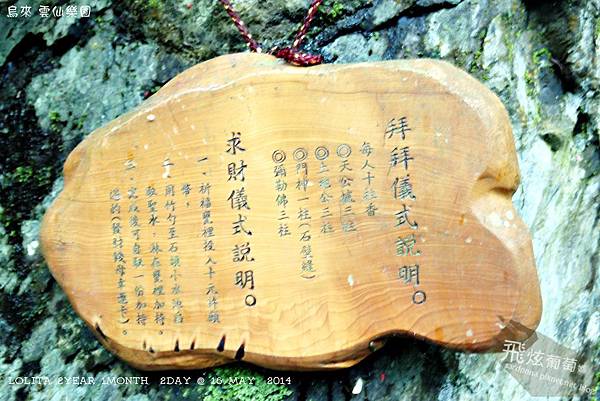 烏來 雲仙樂園
拜拜儀式說明。
每人十柱香
◎天公爐三柱
◎土地公三柱
◎門神一柱(石壁縫)
◎彌勒佛三柱
求財儀式說明。
一、祈福甕裡投入十元許願幣。
二、用竹勺至石頭小水池舀取聖水，放在甕裡加持。
三、完成後可自取一份加持過的(發財錢母幸運卡)。
LOLITA 2YEAR 1MONTH 2DAY @ 16 MAY 2014
飛炫葡萄